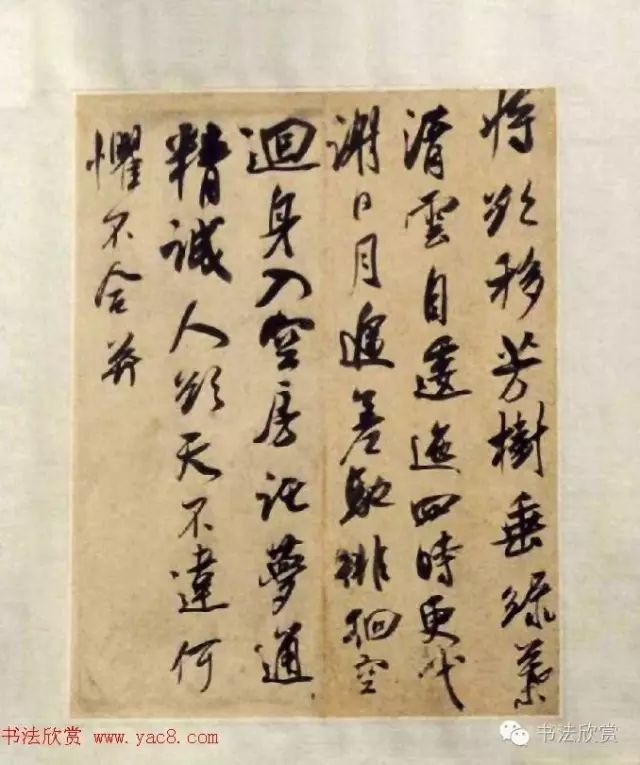 将欲移芳樹垂綠葉
清雲自逶迤四時更代
謝日月遞差馳徘徊空
迴身入空房託夢通
精誠人欲天不違何
懼不合并
书法欣赏 www.yac8.com
书法欣赏